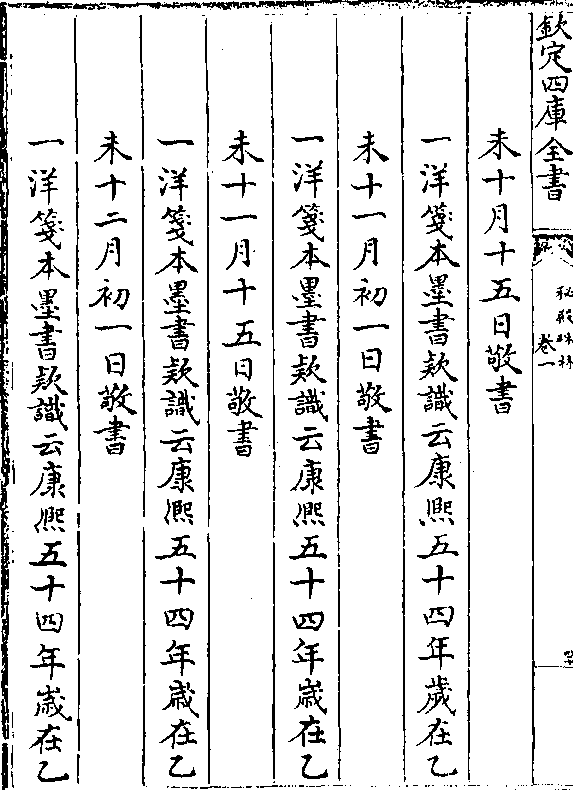 欽定四庫全書
秘殿珠林
卷一
未十月十五日敬書
一洋箋本墨書欵識云康熈五十四年歲在乙
未十一月初一日敬書
一洋箋本墨書欵識云康熈五十四年歲在乙
未十一月十五日敬書
一洋箋本墨書欵識云康熈五十四年歲在乙
未十二月初一日敬書
一洋箋本墨書欵識云康熈五十四年歲在乙